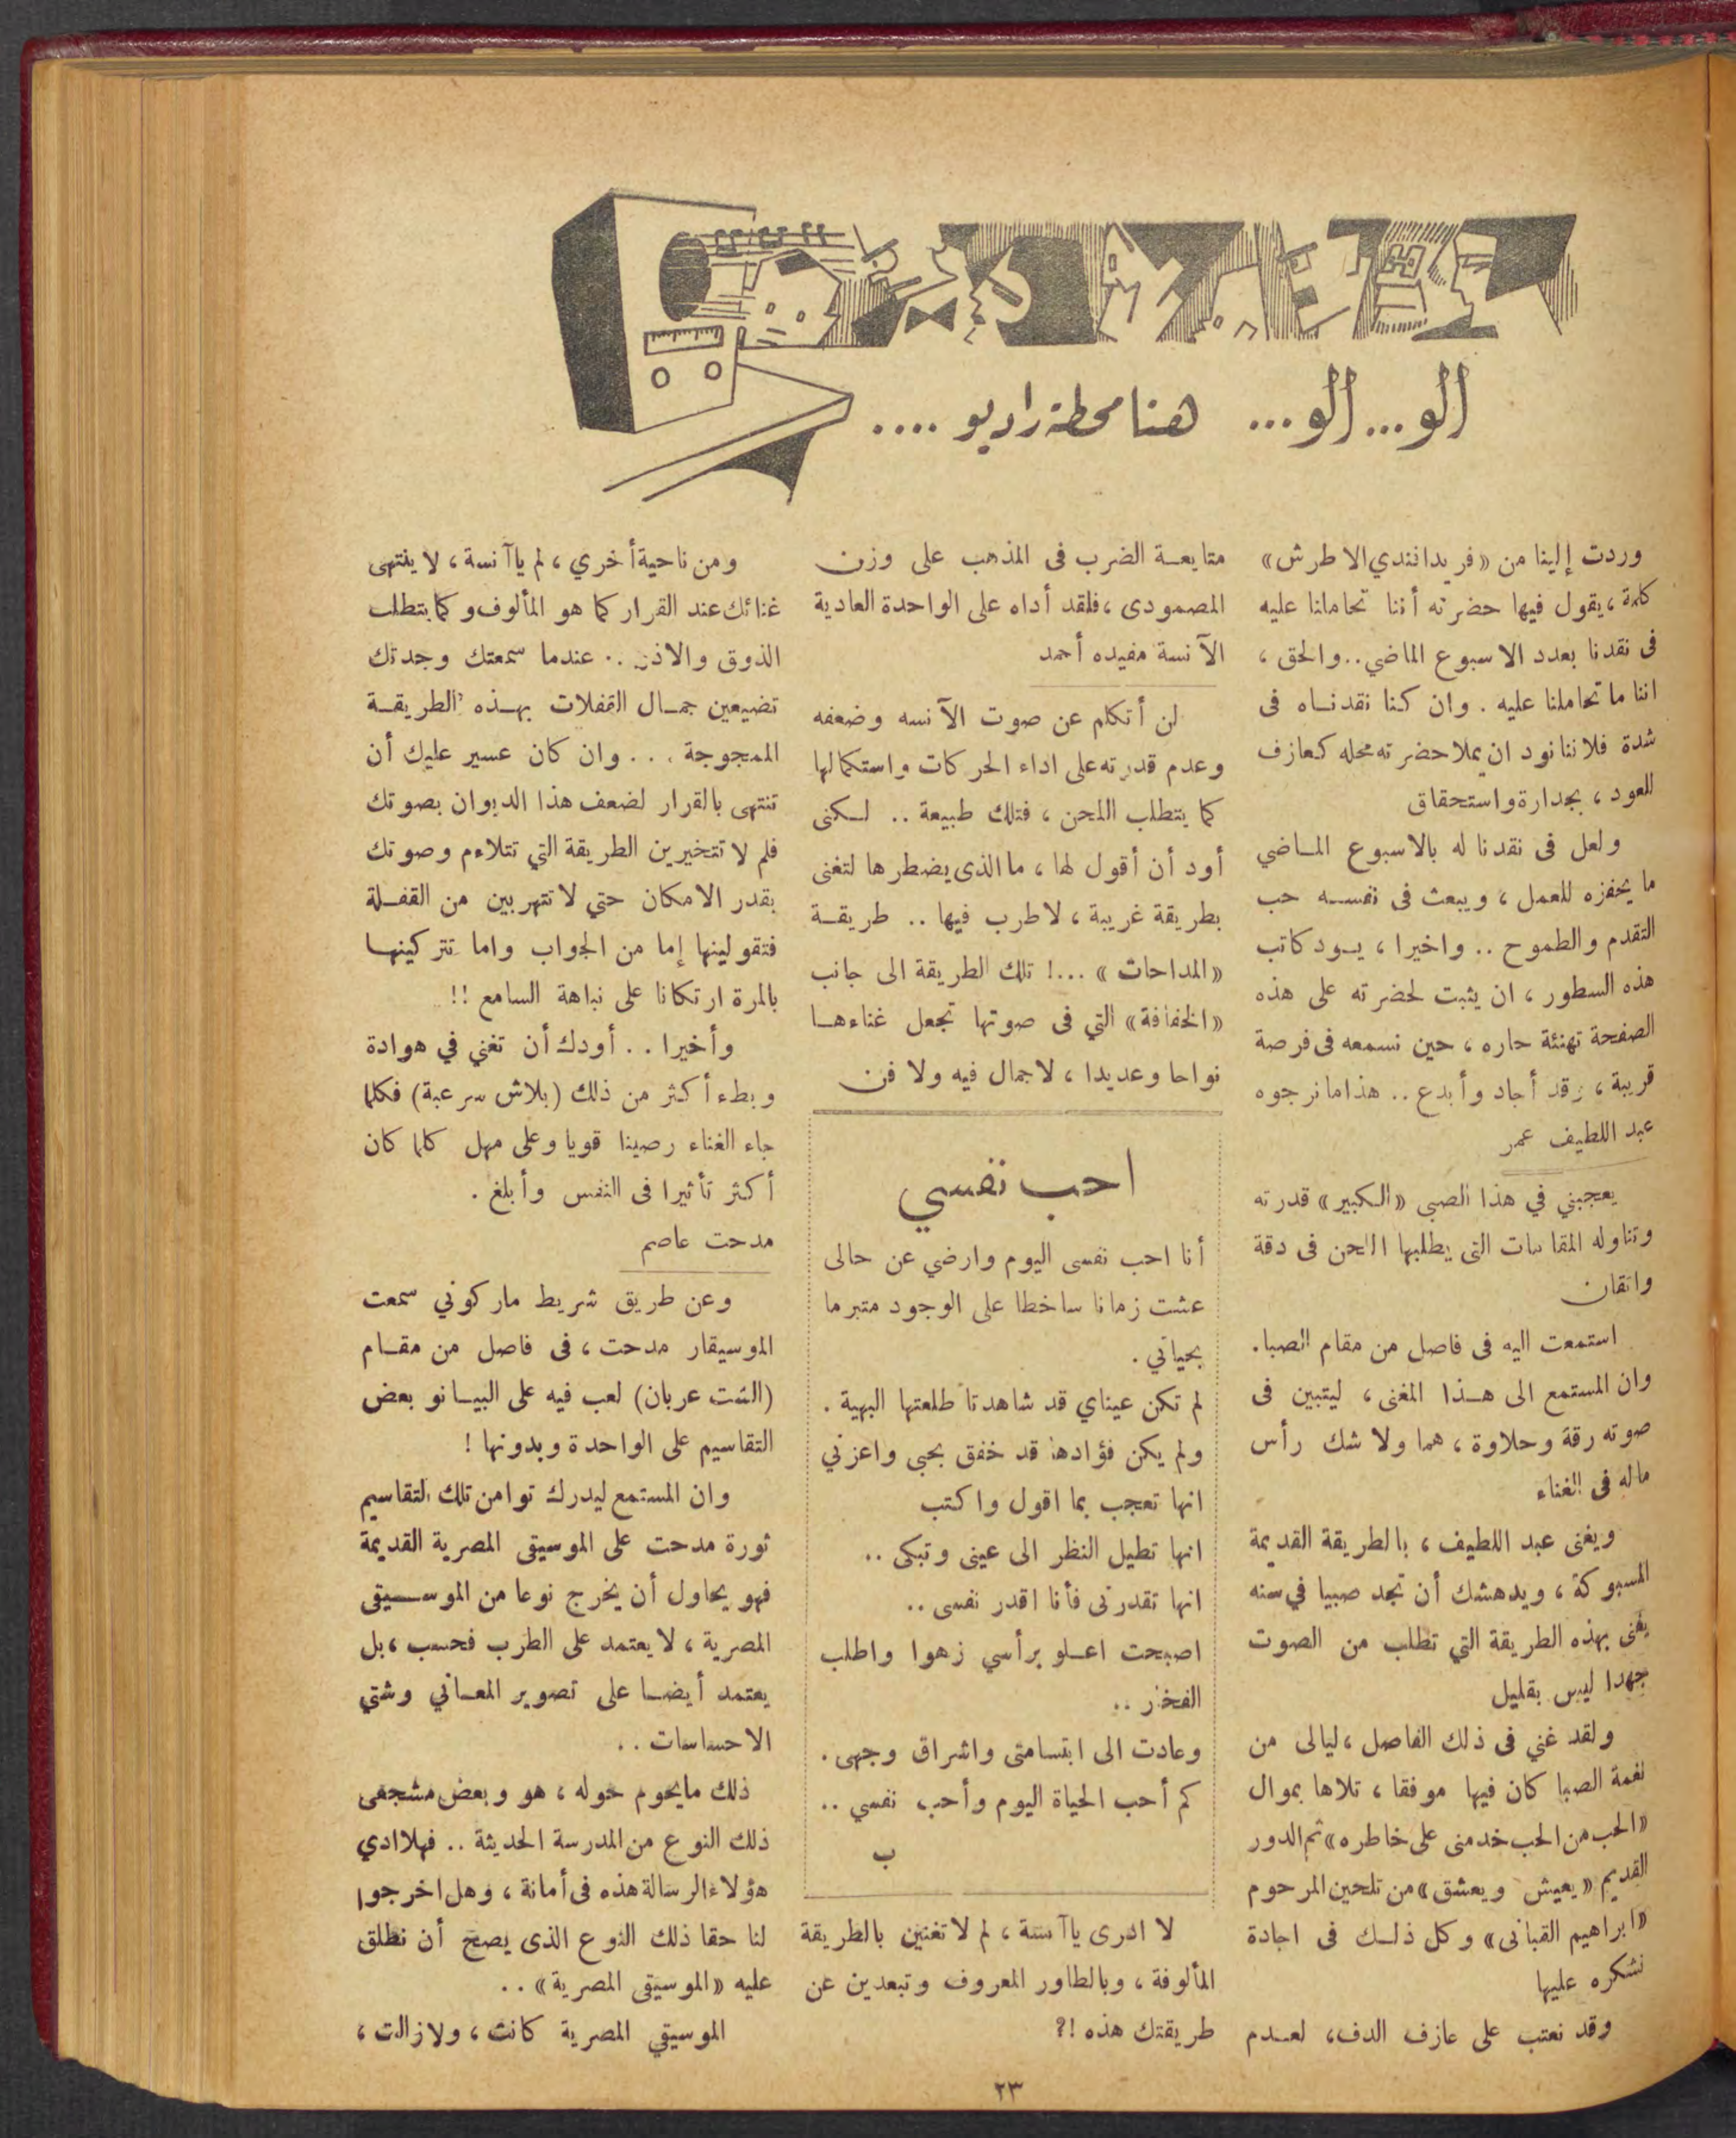 الو... الو... هنا محطة راديو ....
وردت إلينا من «فريد افندي الاطرش»
كلمة، يقول فيها حضرته أننا تحاملنا عليه
فى نقدنا بعدد الاسبوع الماضي.. والحق،
اننا ما تحاملنا عليه. وان كنا نقدناه فى
شدة فلاننا نود ان يملا حضرته محله كعازف
للعود، بجدارة واستحقاق
ولعل فى نقدنا له بالاسبوع الماضي
ما يحفزه للعمل، ويبعث فى نفسه حب
التقدم والطموح .. واخيرا، يود كاتب
هذه السطور، ان يثبت لحضرته على هذه
الصفحة تهنئة حاره، حين نسمعه فى فرصة
قريبة، وقد أجاد وأبدع .. هذا ما نرجوه
عبد اللطيف عمر
يعجبني في هذا الصبى «الكبير» قدرته
وتناوله المقامات التى يطلبها اللحن فى دقة
واتقان
استمعت اليه فى فاصل من مقام الصبا.
وان المستمع الى هذا المغنى، ليتبين فى
صوته رقة وحلاوة، هما ولا شك رأس
ماله فى الغناء
ويغنى عبد اللطيف، بالطريقة القديمة
المسبوكة، ويدهشك أن تجد صبيا في سنه
يغنى بهذه الطريقة التي تطلب من الصوت
جهدا ليس بقليل
ولقد غني فى ذلك الفاصل، ليالى من
نغمة الصبا كان فيها موفقا، تلاها بموال
«الحب من الحب خدمنى على خاطره» ثم الدور
القديم «يعيش ويعشق» من تلحين المرحوم
«ابراهيم القبانى» وكل ذلك فى اجادة
نشكره عليها
وقد نعتب على عازف الدف، لعدم
متابعة الضرب فى المذهب على وزن
المصمودى، فلقد أداه على الواحدة العادية
الآنسة مفيده أحمد
لن أتكلم عن صوت الآنسه وضعفه
وعدم قدرته على اداء الحركات واستكمالها
كما يتطلب اللحن، فتلك طبيعة .. لكنى
أود أن أقول لها، ما الذى يضطرها لتغنى
بطريقة غريبة، لا طرب فيها .. طريقة
«المداحات» ...! تلك الطريقة الى جانب
«الخفافة» التي فى صوتها تجعل غناءها
نواحا وعديدا، لا جمال فيه ولا فن
احب نفسي
أنا احب نفسى اليوم وارضي عن حالى
عشت زمانا ساخطا على الوجود متبرما
بحياتي.
لم تكن عيناي قد شاهدتا طلعتها البهية.
ولم يكن فؤادها قد خفق بحبى واعزني
انها تعجب بما اقول واكتب
انها تطيل النظر الى عينى وتبكى ..
انها تقدرنى فأنا اقدر نفسى ..
اصبحت اعلو برأسي زهوا واطلب
الفخار ..
وعادت الى ابتسامتى واشراق وجهى.
كم أحب الحياة اليوم وأحب نفسي ..
ب
لا ادرى يا آنسة، لم لا تغنين بالطريقة
المألوفة، وبالطاور المعروف وتبعدين عن
طريقتك هذه !؟
ومن ناحية أخري، لم يا آنسة، لا ينتهى
غنائك عند القرار كما هو المألوف وكما يتطلب
الذوق والاذن .. عندما سمعتك وجدتك
تضيعين جمال القفلات بهذه الطريقة
الممجوجة ... وان كان عسير عليك أن
تنتهى بالقرار لضعف هذا الديوان بصوتك
فلم لا تتخيرين الطريقة التي تتلاءم وصوتك
بقدر الامكان حتي لا تتهربين من القفلة
فتقولينها إما من الجواب واما تتركينها
بالمرة ارتكانا على نباهة السامع !!
وأخيرا .. أودك أن تغني في هوادة
وبطء أكثر من ذلك (بلاش سرعبة) فكلما
جاء الغناء رصينا قويا وعلى مهل كلما كان
أكثر تأثيرا فى النفس وأبلغ.
مدحت عاصم
وعن طريق شريط ماركوني سمعت
الموسيقار مدحت، فى فاصل من مقام
(الشت عربان) لعب فيه على البيانو بعض
التقاسيم على الواحدة وبدونها!
وان المستمع ليدرك توا من تلك التقاسيم
ثورة مدحت على الموسيقى المصرية القديمة
فهو يحاول أن يخرج نوعا من الموسيقى
المصرية، لا يعتمد على الطرب فحسب، بل
يعتمد أيضا على تصوير المعاني وشتي
الاحساسات ..
ذلك ما يحوم حوله، هو وبعض مشجعى
ذلك النوع من المدرسة الحديثة .. فهلا ادي
هؤلاء الرسالة هذه فى أمانة، وهل اخرجوا
لنا حقا ذلك النوع الذى يصح أن نطلق
عليه «الموسيقى المصرية» ..
الموسيقي المصرية كانت، ولا زالت،
٢٣